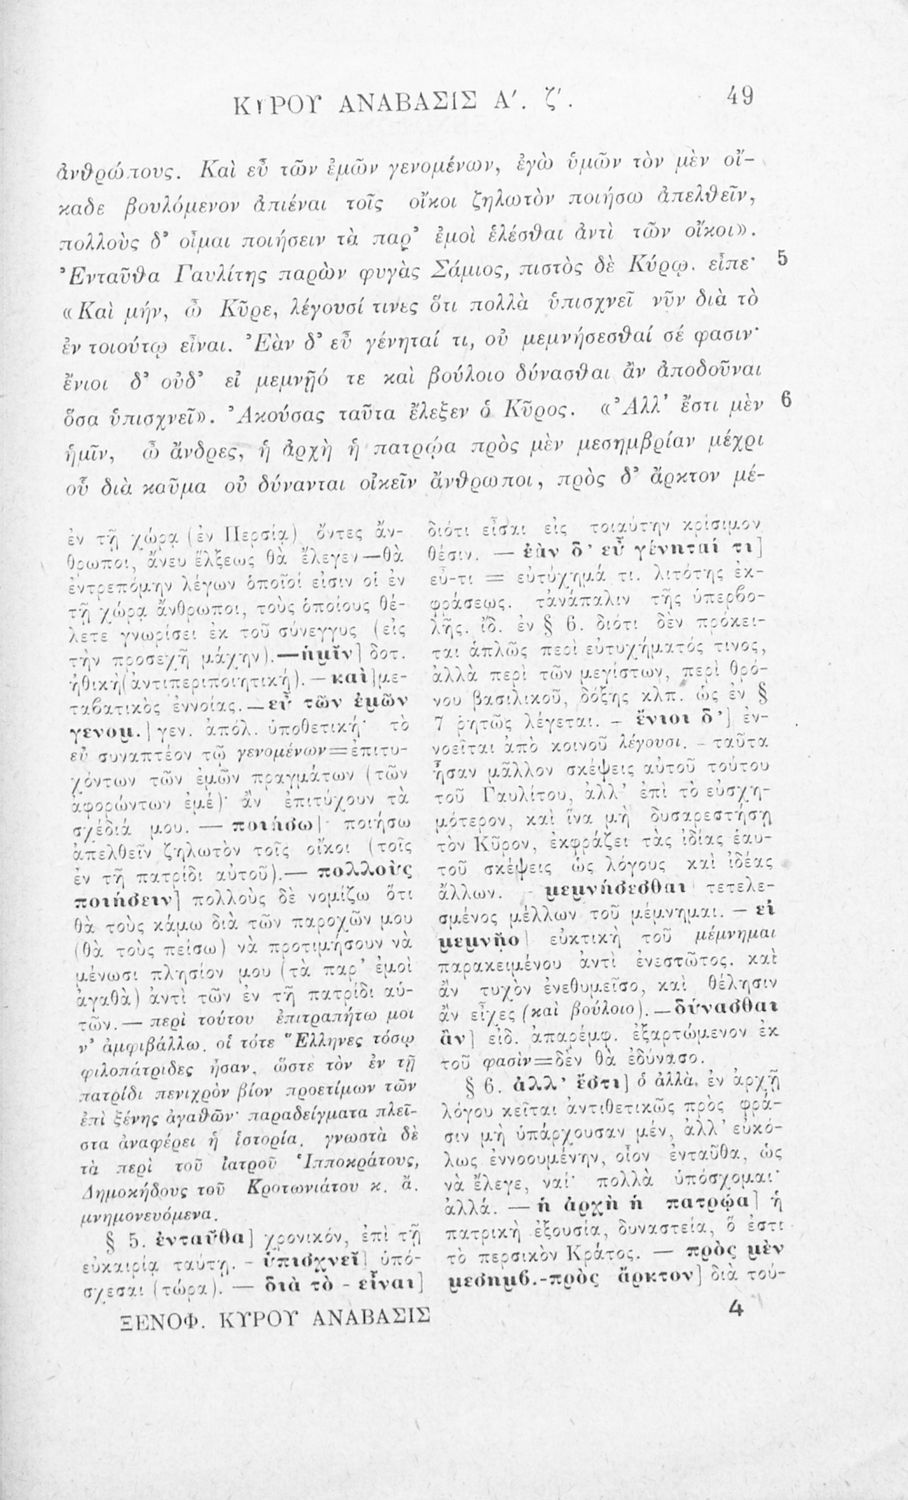 ΚΥΡΟΥ ΑΝΑΒΑΣΙΣ Α′. ζ′.
49
ἀνθρώπους. Καὶ εὖ τῶν ἐμῶν γενομένων, ἐγὼ ὑμῶν τὸν μὲν οἴ-
καδε βουλόμενον ἀπιέναι τοῖς οἴκοι ζηλωτὸν ποιήσω ἀπελθεῖν,
πολλοὺς δ' οἶμαι ποιήσειν τὰ παρ' ἐμοὶ ἑλέσθαι ἀντὶ τῶν οἴκοι».
Ἐνταῦθα Γαυλίτης παρὼν φυγὰς Σάμιος, πιστὸς δὲ Κύρῳ. εἶπε· 5
«Καὶ μήν, ὦ Κῦρε, λέγουσί τινες ὅτι πολλὰ ὑπισχνεῖ νῦν διὰ τὸ
ἐν τοιούτῳ εἶναι. Ἐὰν δ' εὖ γένηταί τι, οὐ μεμνήσεσθαί σέ φασιν·
ἔνιοι δ' οὐδ' εἰ μεμνῇό τε καὶ βούλοιο δύνασθαι ἂν ἀποδοῦναι
ὅσα ὑπισχνεῖ». Ἀκούσας ταῦτα ἔλεξεν ὁ Κῦρος. «Ἀλλ' ἔστι μὲν 6
ἡμῖν, ὦ ἄνδρες, ἡ ἀρχὴ ἡ πατρῴα πρὸς μὲν μεσημβρίαν μέχρι
οὗ διὰ καῦμα οὐ δύνανται οἰκεῖν ἄνθρωποι, πρὸς δ' ἄρκτον μέ-
ἐν τῇ χώρᾳ (ἐν Περσίᾳ) ὄντες ἄν-
θρωποι, ἄνευ ἕλξεως θὰ ἔλεγεν—θὰ
ἐντρεπόμην λέγων ὁποῖοί εἰσιν οἱ ἐν
τῇ χώρᾳ ἄνθρωποι, τοὺς ὁποίους θέ-
λετε γνωρίσει ἐκ τοῦ σύνεγγυς (εἰς
τὴν προσεχῆ μάχην).—ἡμῖν] δοτ.
ἠθικὴ(ἀντιπεριποιητική).—καὶ]με-
ταβατικὸς ἐννοίας.—εὖ τῶν ἐμῶν
γενομ.] γεν. ἀπόλ. ὑποθετική· τὸ
εὖ συναπτέον τῷ γενομένων=ἐπιτυ-
χόντων τῶν ἐμῶν πραγμάτων (τῶν
ἀφορώντων ἐμέ)· ἂν ἐπιτύχουν τὰ
σχέδιά μου. — ποιήσω] ποιήσω
ἀπελθεῖν ζηλωτὸν τοῖς οἴκοι (τοῖς
ἐν τῇ πατρίδι αὐτοῦ).— πολλοὺς
ποιήσειν] πολλοὺς δὲ νομίζω ὅτι
θὰ τοὺς κάμω διὰ τῶν παροχῶν μου
(θὰ τοὺς πείσω) νὰ προτιμήσουν νὰ
μένωσι πλησίον μου (τὰ παρ' ἐμοὶ
ἀγαθὰ) ἀντὶ τῶν ἐν τῇ πατρίδι αὐ-
τῶν.— περὶ τούτου ἐπιτραπήτω μοι
ν' ἀμφιβάλλω. οἱ τότε Ἕλληνες τόσῳ
φιλοπάτριδες ἦσαν, ὥστε τὸν ἐν τῇ
πατρίδι πενιχρὸν βίον προετίμων τῶν
ἐπὶ ξένης ἀγαθῶν· παραδείγματα πλεῖ-
στα ἀναφέρει ἡ ἱστορία, γνωστὰ δὲ
τὰ περὶ τοῦ ἰατροῦ Ἱπποκράτους,
Δημοκήδους τοῦ Κροτωνιάτου κ. ἄ.
μνημονευόμενα.
§ 5. ἐνταῦθα] χρονικόν, ἐπὶ τῇ
εὐκαιρίᾳ ταύτῃ. - ὑπισχνεῖ] ὑπό-
σχεσαι (τώρα). — διὰ τὸ - εἶναι]
διότι εἶσαι εἰς τοιαύτην κρίσιμον
θέσιν. — ἐὰν δ' εὖ γένηταί τι]
εὖ-τι = εὐτύχημά τι. λιτότης ἐκ-
φράσεως. τἀνάπαλιν τῆς ὑπερβο-
λῆς. ἰδ. ἐν § 6. διότι δὲν πρόκει-
ται ἁπλῶς περὶ εὐτυχήματός τινος,
ἀλλὰ περὶ τῶν μεγίστων, περὶ θρό-
νου βασιλικοῦ, δόξης κλπ. ὡς ἐν §
7 ῥητῶς λέγεται. - ἔνιοι δ'] ἐν-
νοεῖται ἀπὸ κοινοῦ λέγουσι. - ταῦτα
ἦσαν μᾶλλον σκέψεις αὐτοῦ τούτου
τοῦ Γαυλίτου, ἀλλ' ἐπὶ τὸ εὐσχη-
μότερον, καὶ ἵνα μὴ δυσαρεστήσῃ
τὸν Κῦρον, ἐκφράζει τὰς ἰδίας ἑαυ-
τοῦ σκέψεις ὡς λόγους καὶ ἰδέας
ἄλλων. - μεμνήσεσθαι] τετελε-
σμένος μέλλων τοῦ μέμνημαι. — εἰ
μεμνῇο] εὐκτικὴ τοῦ μέμνημαι
παρακειμένου ἀντὶ ἐνεστῶτος. καὶ
ἂν τυχὸν ἐνεθυμεῖσο, καὶ θέλησιν
ἂν εἶχες (καὶ βούλοιο).—δύνασθαι
ἂν] εἰδ. ἀπαρέμφ. ἐξαρτώμενον ἐκ
τοῦ φασὶν=δὲν θὰ ἐδύνασο.
§ 6. ἀλλ' ἔστι] ὁ ἀλλὰ, ἐν ἀρχῇ
λόγου κεῖται ἀντιθετικῶς πρὸς φρά-
σιν μὴ ὑπάρχουσαν μέν, ἀλλ' εὐκό-
λως ἐννοουμένην, οἷον ἐνταῦθα, ὡς
νὰ ἔλεγε, ναί· πολλὰ ὑπόσχομαι·
ἀλλά. — ἡ ἀρχὴ ἡ πατρῴα] ἡ
πατρικὴ ἐξουσία, δυναστεία, ὅ ἐστι
τὸ περσικὸν Κράτος. — πρὸς μὲν
μεσημβ.-πρὸς ἄρκτον] διὰ τού-
ΞΕΝΟΦ. ΚΥΡΟΥ ΑΝΑΒΑΣΙΣ
4